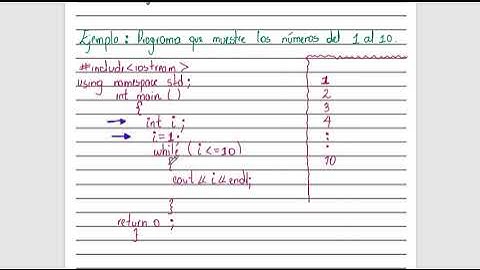 Ejemplo: Programa que muestre los números del 1 al 10.
#include<iostream>
using namespace std;
int main ()
{
int i;
i=1;
while (i<=10)
{
cout << i << endl;
}
return 0;
}
1
2
3
4
:
:
10